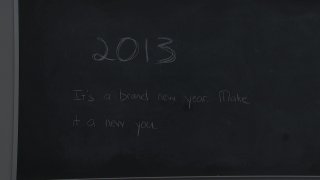 2013
It's a brand new year. Make
it a new you